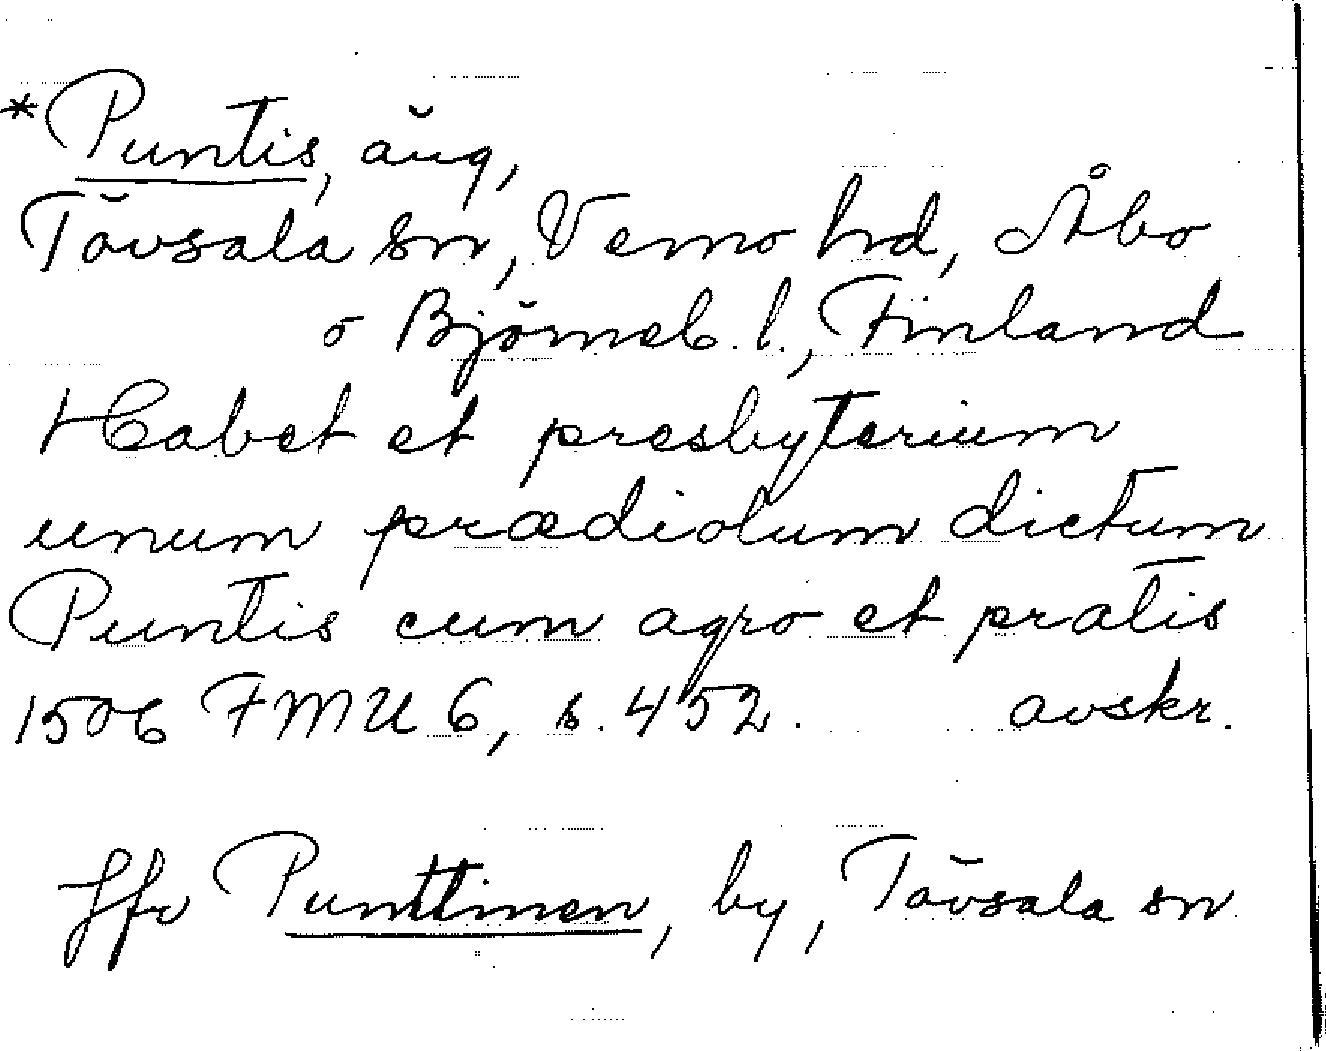 *Puntis, äng,
Tövsala sn, Vemo hd, Åbo
o Björneb. l., Finland
Habet et presbyterium
unum prædiolum dictum
Puntis cum agro et pratis
1506 FMU 6, s. 452. avskr.
Jfr Punttinen, by, Tövsala sn